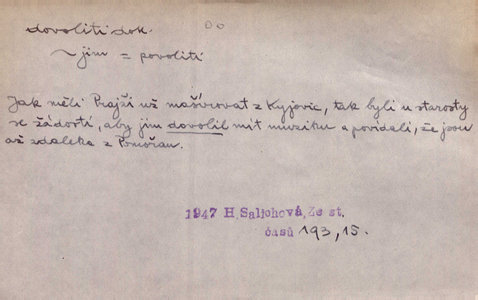 dovoliti dok.
~ jim = povoliti
Jak měli Prajzi už mašírovat z Kyjovic, tak byli u starosty
se žádostí, aby jim dovolil mít muziku a povídali, že jsou
až zdaleka z Pomořan.
1947 H. Salichová, Ze st.
časů 193, 15.